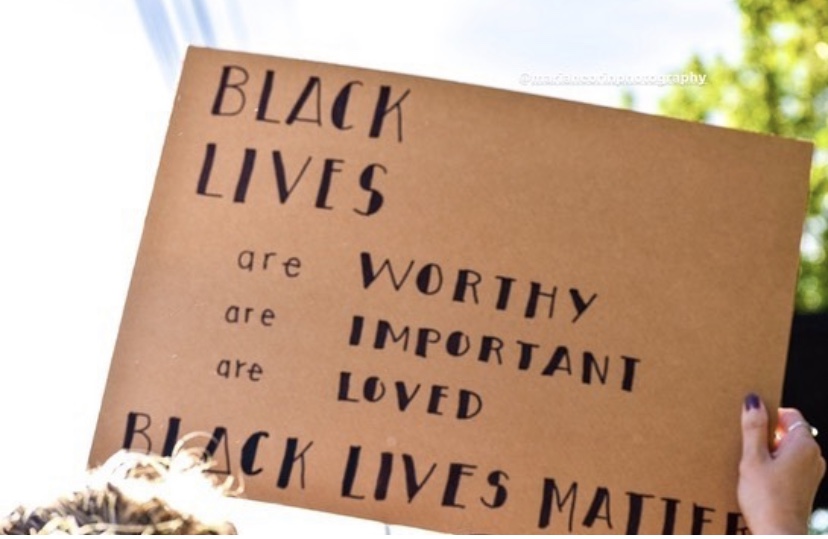 @mariancorinphotography
BLACK
LIVES
are WORTHY
are IMPORTANT
are LOVED
BLACK LIVES MATTER